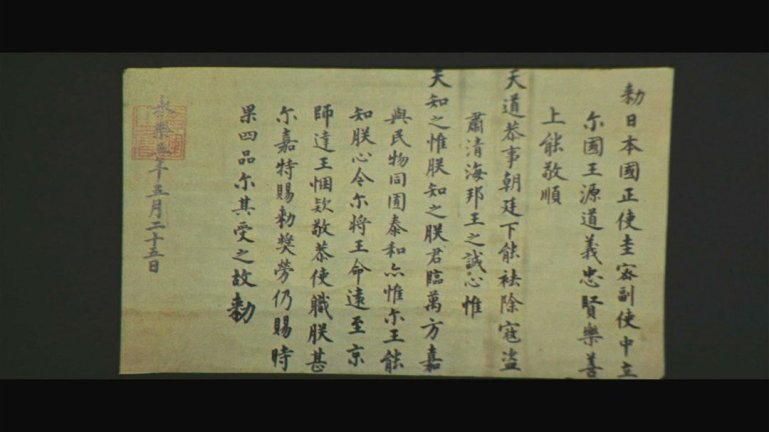 勅日本國正使圭密副使中立
尓國王源道義忠賢樂善
上能敬順
天道恭事朝廷下能祛除寇盗
肅清海邦王之誠心惟
天知之惟朕知之朕君臨萬方嘉
與民物同囿泰和尒惟尓王能
知朕心令尓将王命遠至京
師達王悃欵敬恭使職朕甚
尓嘉特賜勅奨勞仍賜時
果四品尓其受之故勅
永樂五年五月二十五日